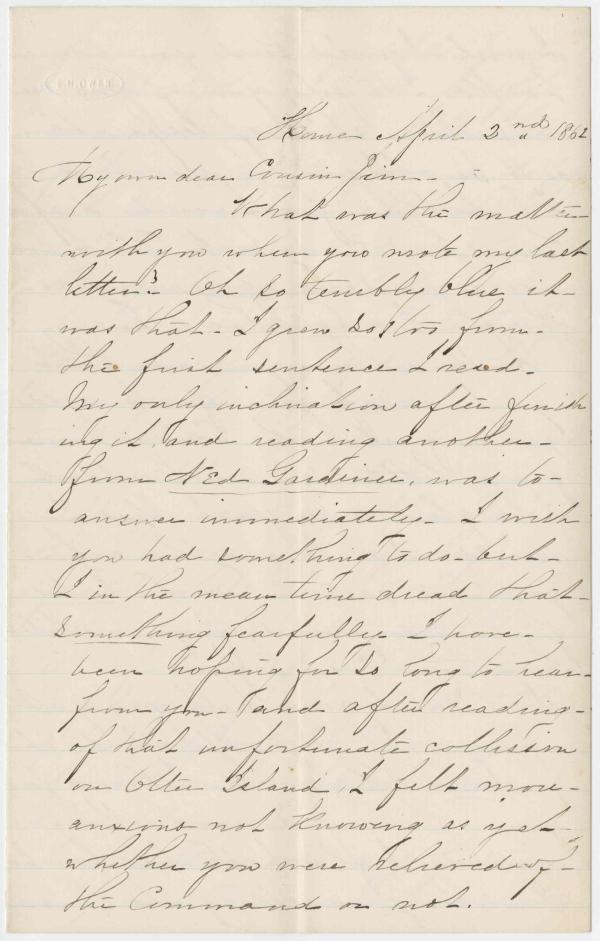 Home April 2nd 1862
My own dear Cousin Jim-
What was the matter
with you when you wrote my last
letter? Oh so terribly blue it
was that- I grew so too from-
the first sentence I read-
My only inclination after finish
ing it, and reading another-
from Ned Gardiner, was to-
answer immediately- I wish
you had something to do- but-
I in the mean time dread that-
something fearfully- I have-
been hoping for so long to hear-
from you- and after reading-
of that unfortunate collision
on Otter Island, I felt more-
anxious not knowing as yet-
whether you were relieved of-
the Command or not.